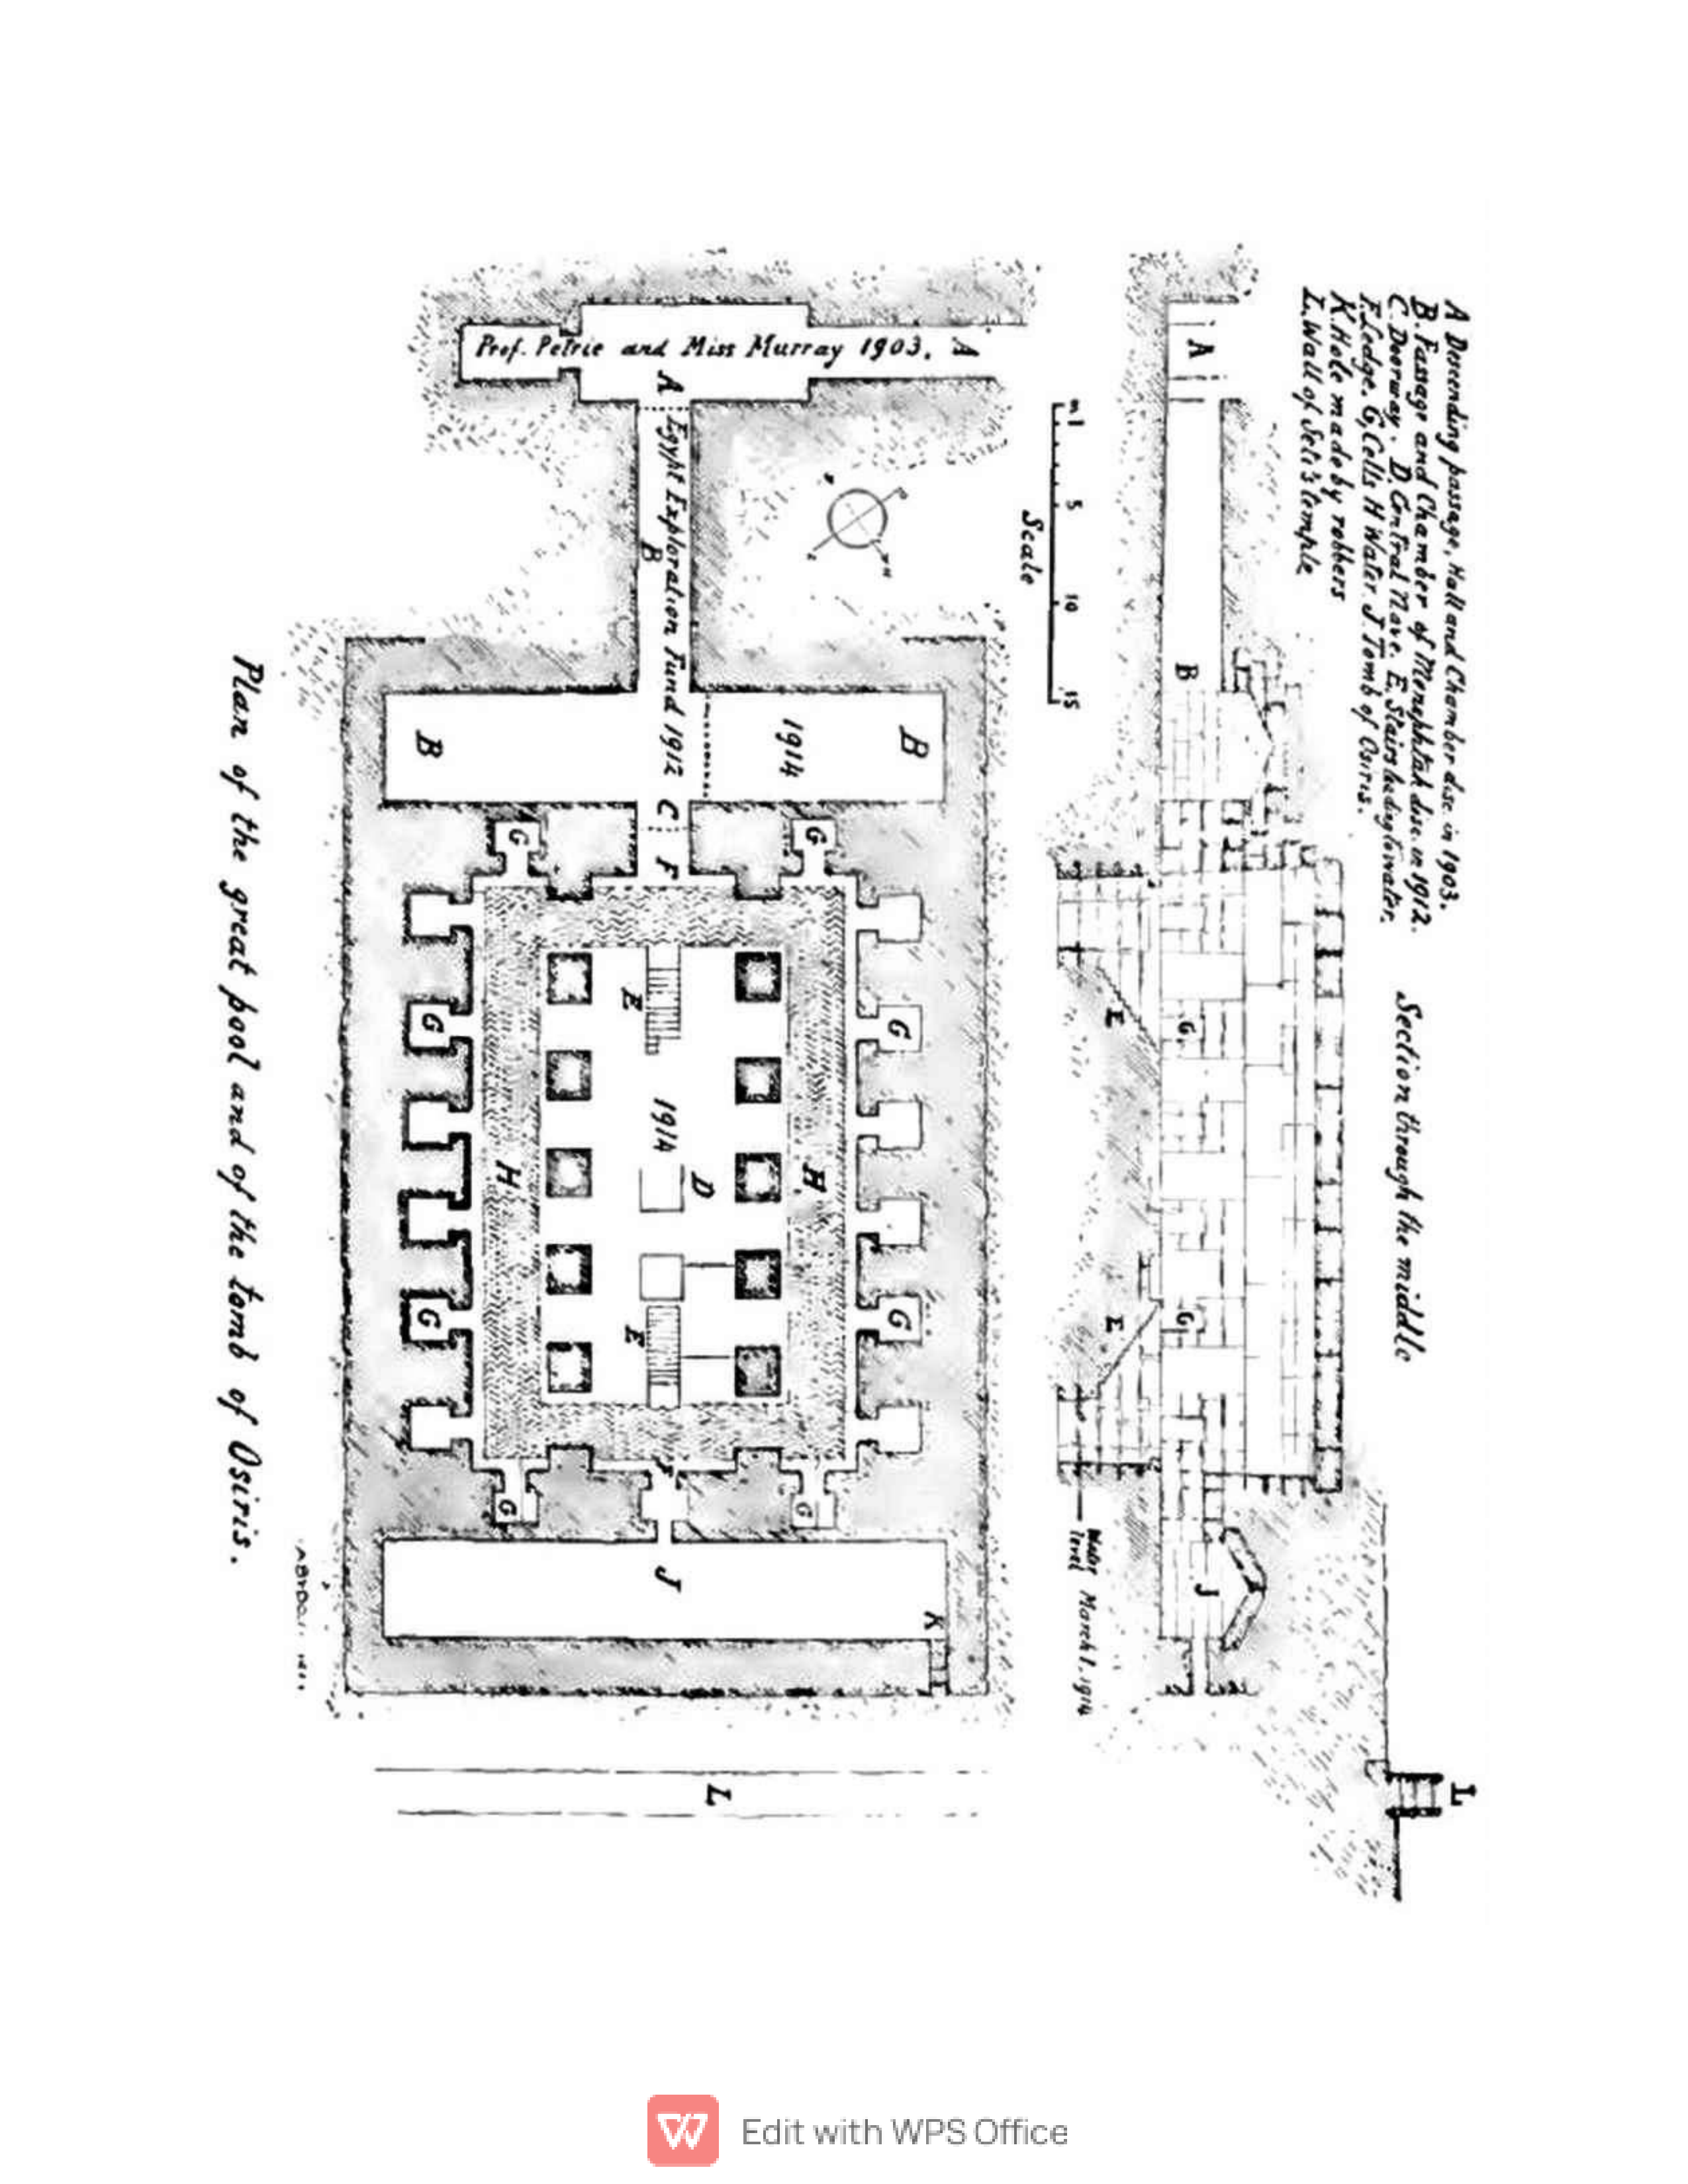 A Descending passage, Hall and Chamber disc. in 1903.
B. Passage and Chamber of Menephtah disc. in 1912.
C. Doorway. D. Central Nave. E. Stairs leading to water.
F. Ledge. G, Cells H Water J. Tomb of Osiris.
K Hole made by robbers
L. Wall of Seti's temple
Section through the middle
A
B
E
G
E
G
J
L
Water level March 1. 1914
m 1 5 10 15
Scale
Prof. Petrie and Miss Murray 1903. A
A
Egypt Exploration Fund 1912
B
B
B
1914
C
F
G
G
G
G
E
1914
D
H
H
G
G
E
G
G
J
K
L
Plan of the great pool and of the tomb of Osiris.
Edit with WPS Office